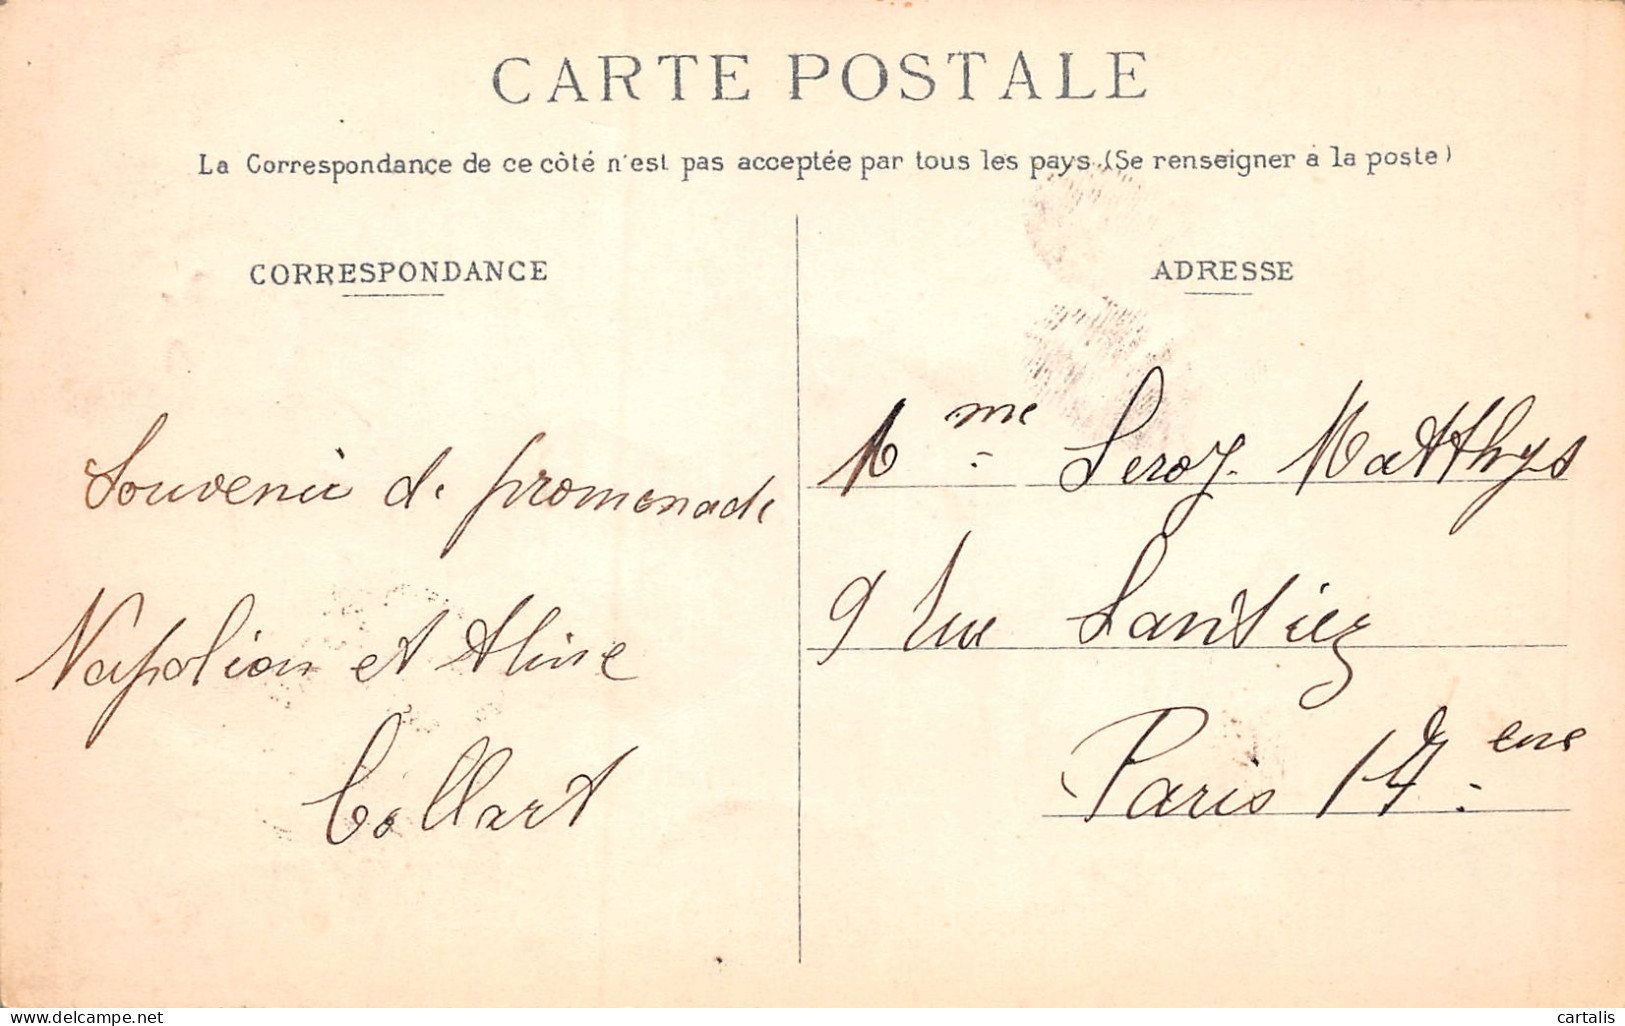 CARTE POSTALE
La Correspondance de ce côté n'est pas acceptée par tous les pays (Se renseigner à la poste)
CORRESPONDANCE
Souvenir de promenade
Napoléon et Aline
Collart
ADRESSE
Mme Leroy Matthys
9 rue Lantiez
Paris 17eme
delcampe.net
cartalis